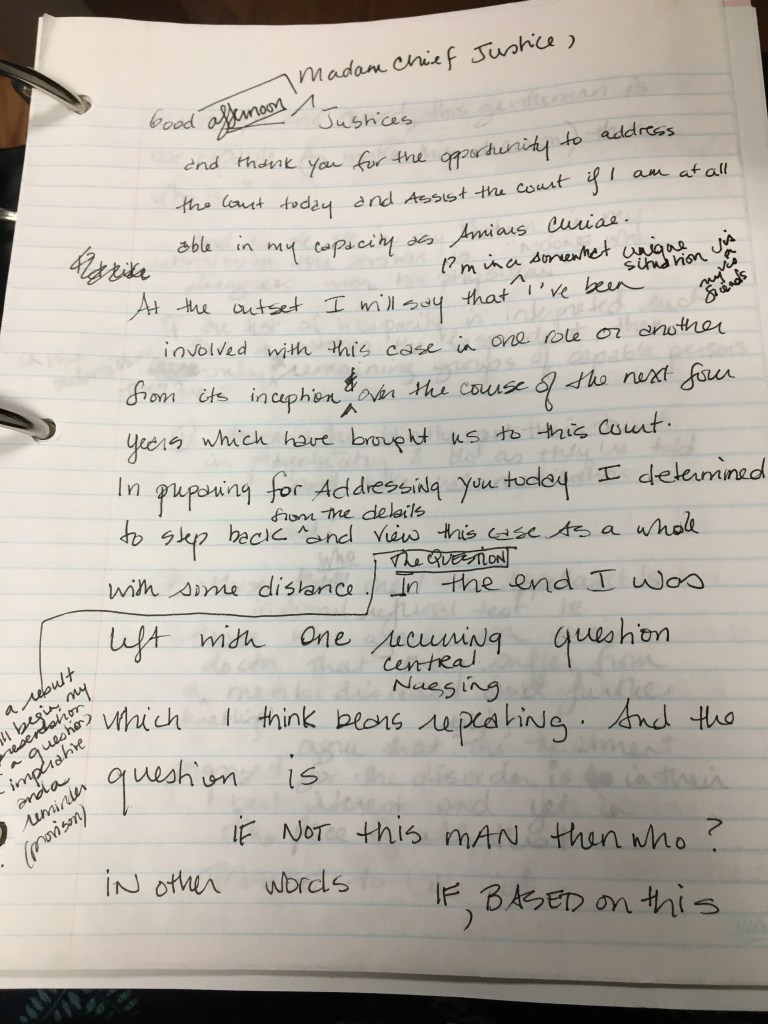 Madam Chief Justice,
Good afternoon Justices
and thank you for the opportunity to address
the Court today and Assist the court if I am at all
able in my capacity as Amicus Curiae.
I'm in a somewhat unique
situation vis
my
friends
At the outset I will say that I've been
involved with this case in one role or another
from its inception & over the course of the next four
years which have brought us to this Court.
In preparing for Addressing you today I determined
from the details
to step back and view this case as a whole
The QUESTION
with some distance. In the end I was
left with one recurring question
central
Nagging
a result
ll begin my
presentation
a question,
imperative
and a
reminder
which I think bears repeating. And the
question is
IF NOT this MAN then who?
IN other words IF, BASED on this